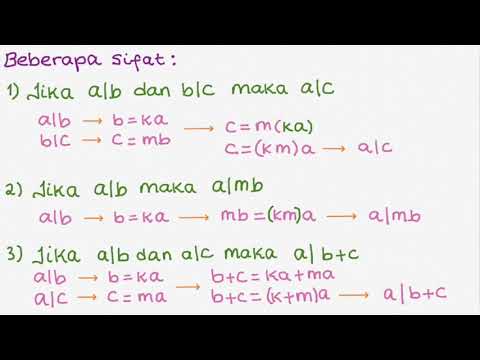 Beberapa sifat:
1) Jika a|b dan b|c maka a|c
a|b → b=ka
b|c → c=mb → c=m(ka)
c=(km)a → a|c
2) Jika a|b maka a|mb
a|b → b=ka → mb=(km)a → a|mb
3) Jika a|b dan a|c maka a|b+c
a|b → b=ka → b+c=ka+ma
a|c → c=ma b+c=(k+m)a → a|b+c